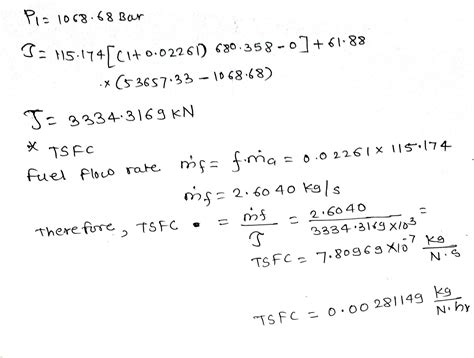 P1 = 1068.68 Bar
J = 115.174[(1+0.02261) 680.358 - 0] + 61.88
.× (53657.33 - 1068.68)
J = 3334.3169 kN
* TSFC
Fuel flow rate ṁf = f.ṁa = 0.02261 × 115.174
ṁf = 2.6040 kg/s
Therefore, TSFC = ṁf/J = 2.6040/3334.3169×10³ =
TSFC = 7.80969 ×10⁻⁷ kg/N.s
TSFC = 0.00281149 kg/N.hr